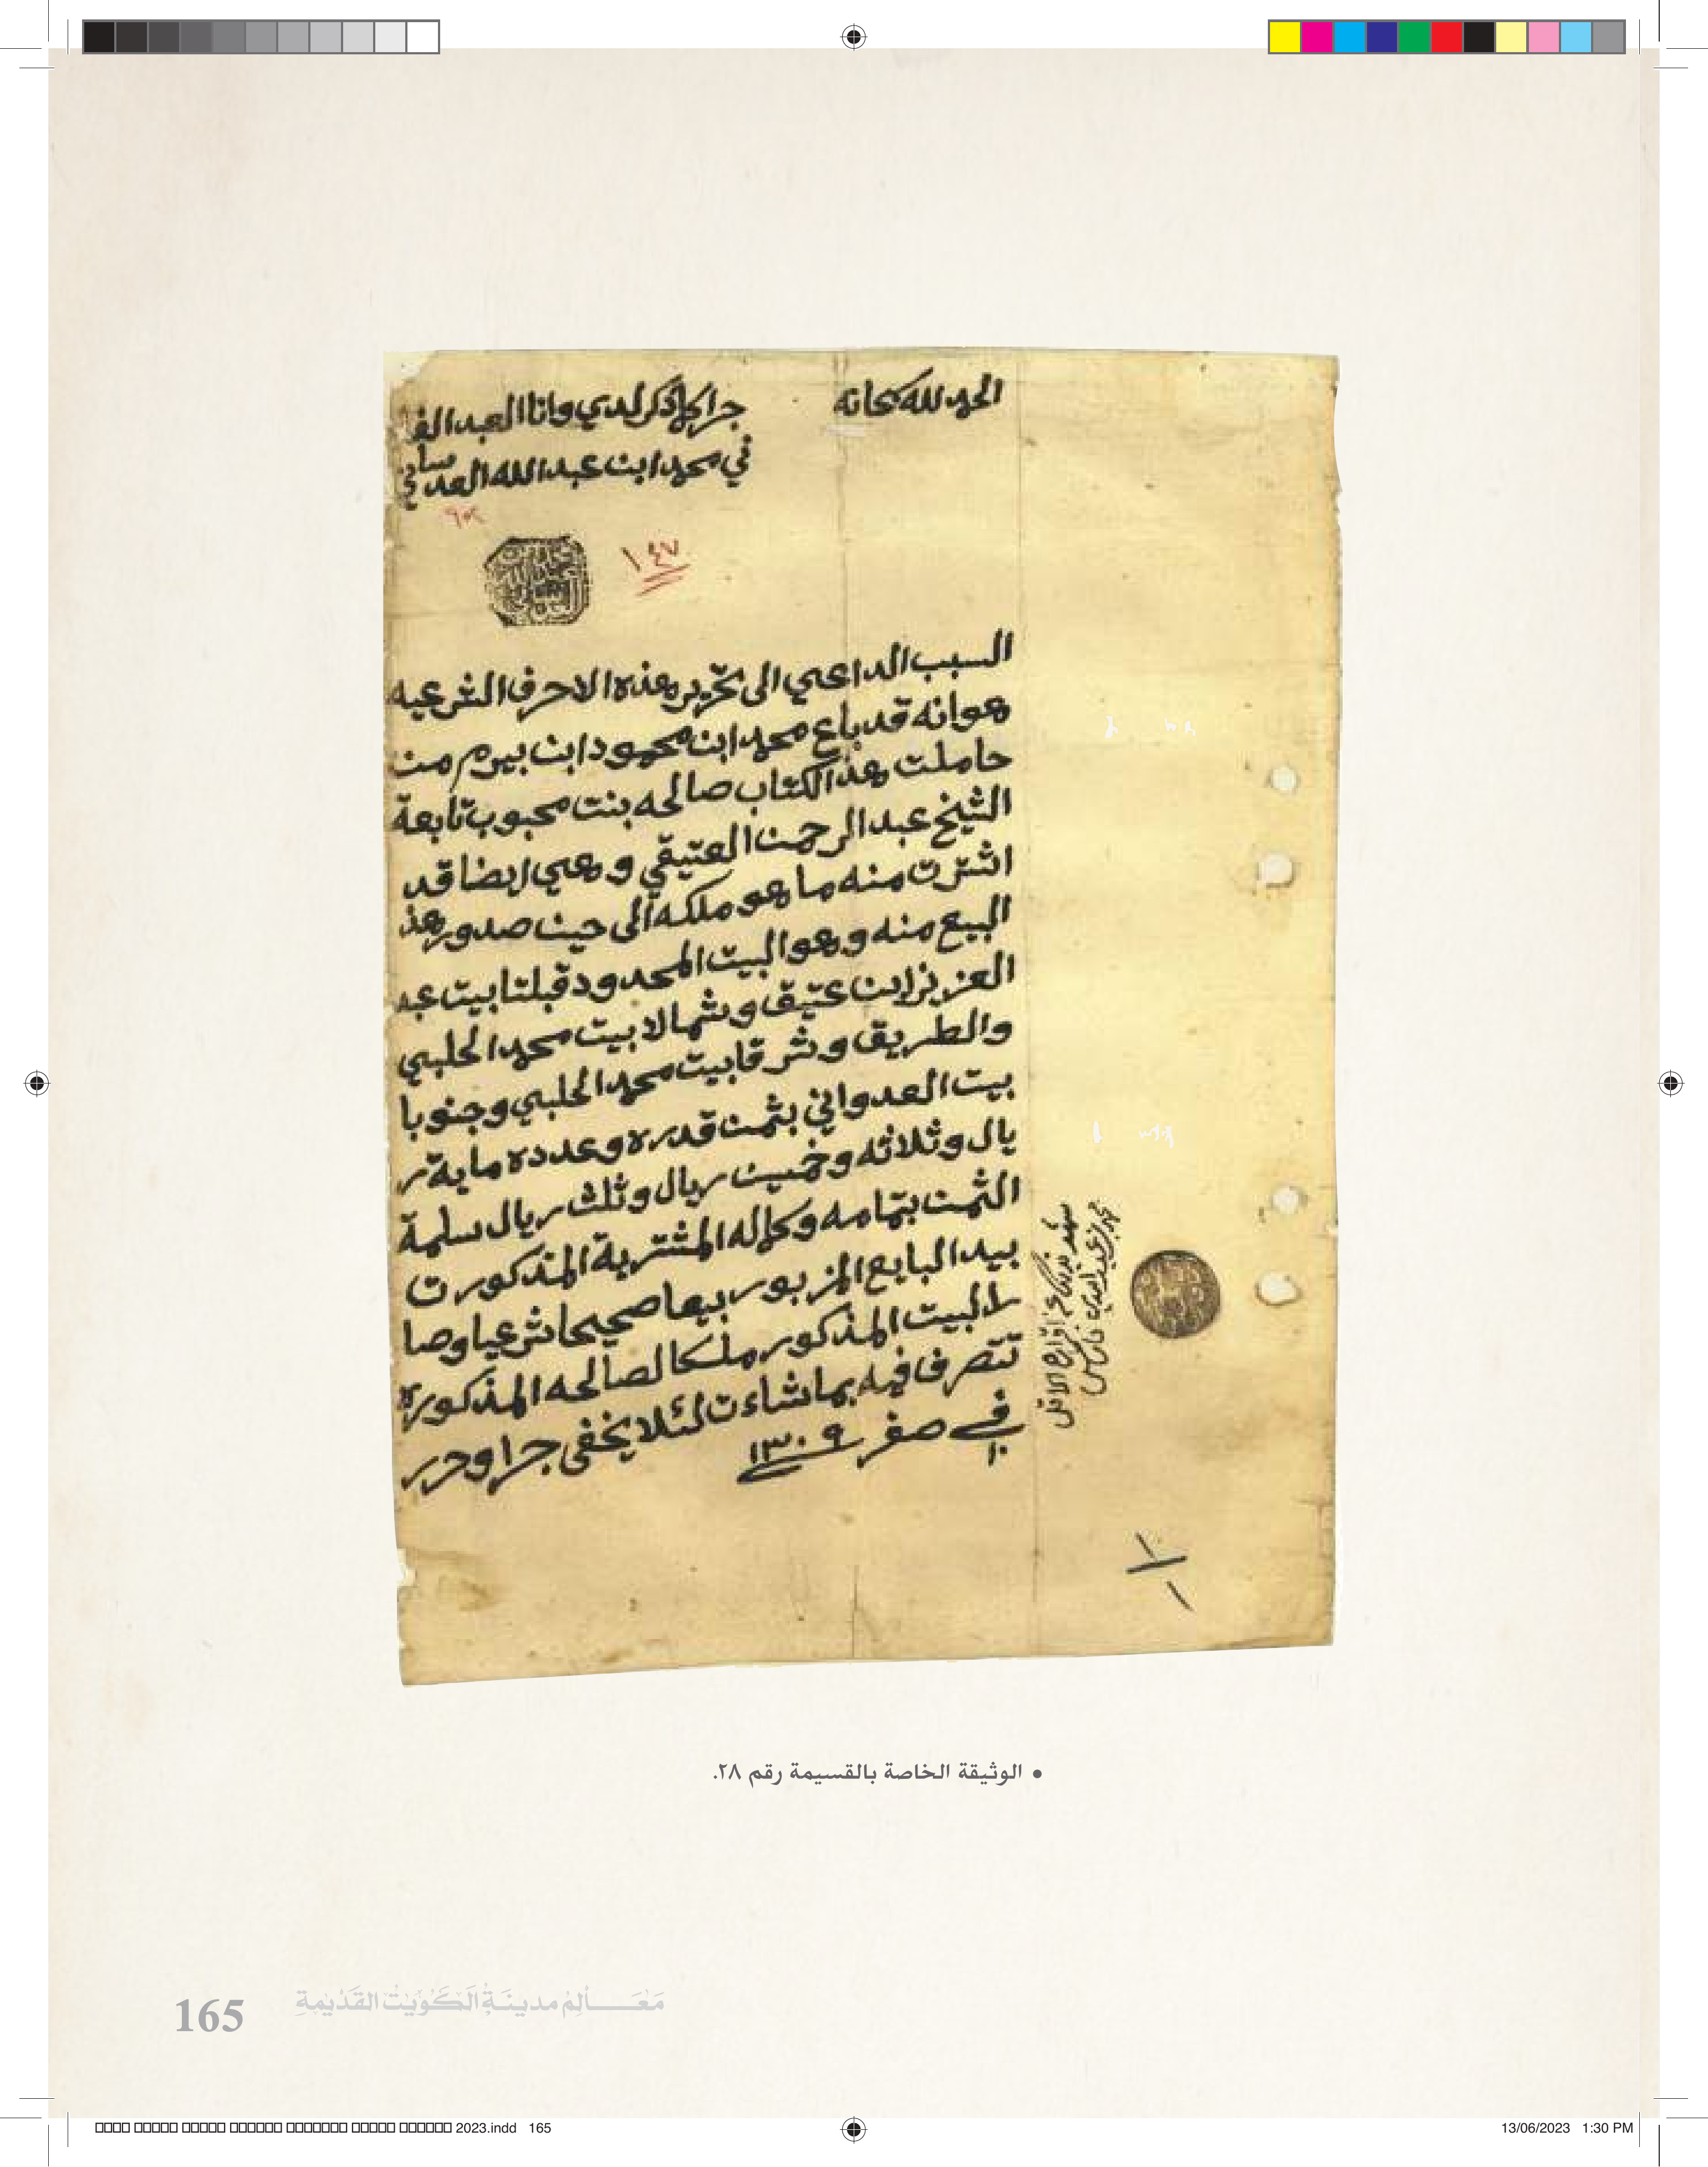 الحمد لله سبحانه
جرا كلما ذكر لدي وانا العبد الفا
ني محمد ابن عبد الله العدساني
١٤٧
السبب الداعي الى تحرير هذه الاحرف الشرعيه
هو انه قد باع محمد ابن محمود ابن بيرم من
حاملت هذ الكتاب صالحه بنت محبوب تابعة
الشيخ عبد الرحمن العتيقي وهي ايضا قد
اشترت منه ما هو ملكه الى حين صدور هذ
البيع منه وهو البيت المحدود قبلتا بيت عبد
العزيز ابن عتيق وشمالا بيت محمد الحلبي
والطريق وشرقا بيت محمد الحلبي وجنوبا
بيت العدواني بثمن قدره وعدده ماية ر
يال وثلاثه وخمسين ريال وثلث ريال سلمة
الثمن بتمامه وكماله المشترية المذكورت
بيد البايع المزبور بيعا صحيحا شرعيا وصا
ر البيت المذكور ملكا لصالحه المذكوره
تتصرف فيه بما شاءت لئلا يخفى جرا وحرر
في ١٠ صفر ١٣٠٩
• الوثيقة الخاصة بالقسيمة رقم ٢٨.
165 مَعَـــالِمْ مدينَةِ الكُوَيْتْ القَدْيمةِ
2023.indd 165
13/06/2023 1:30 PM